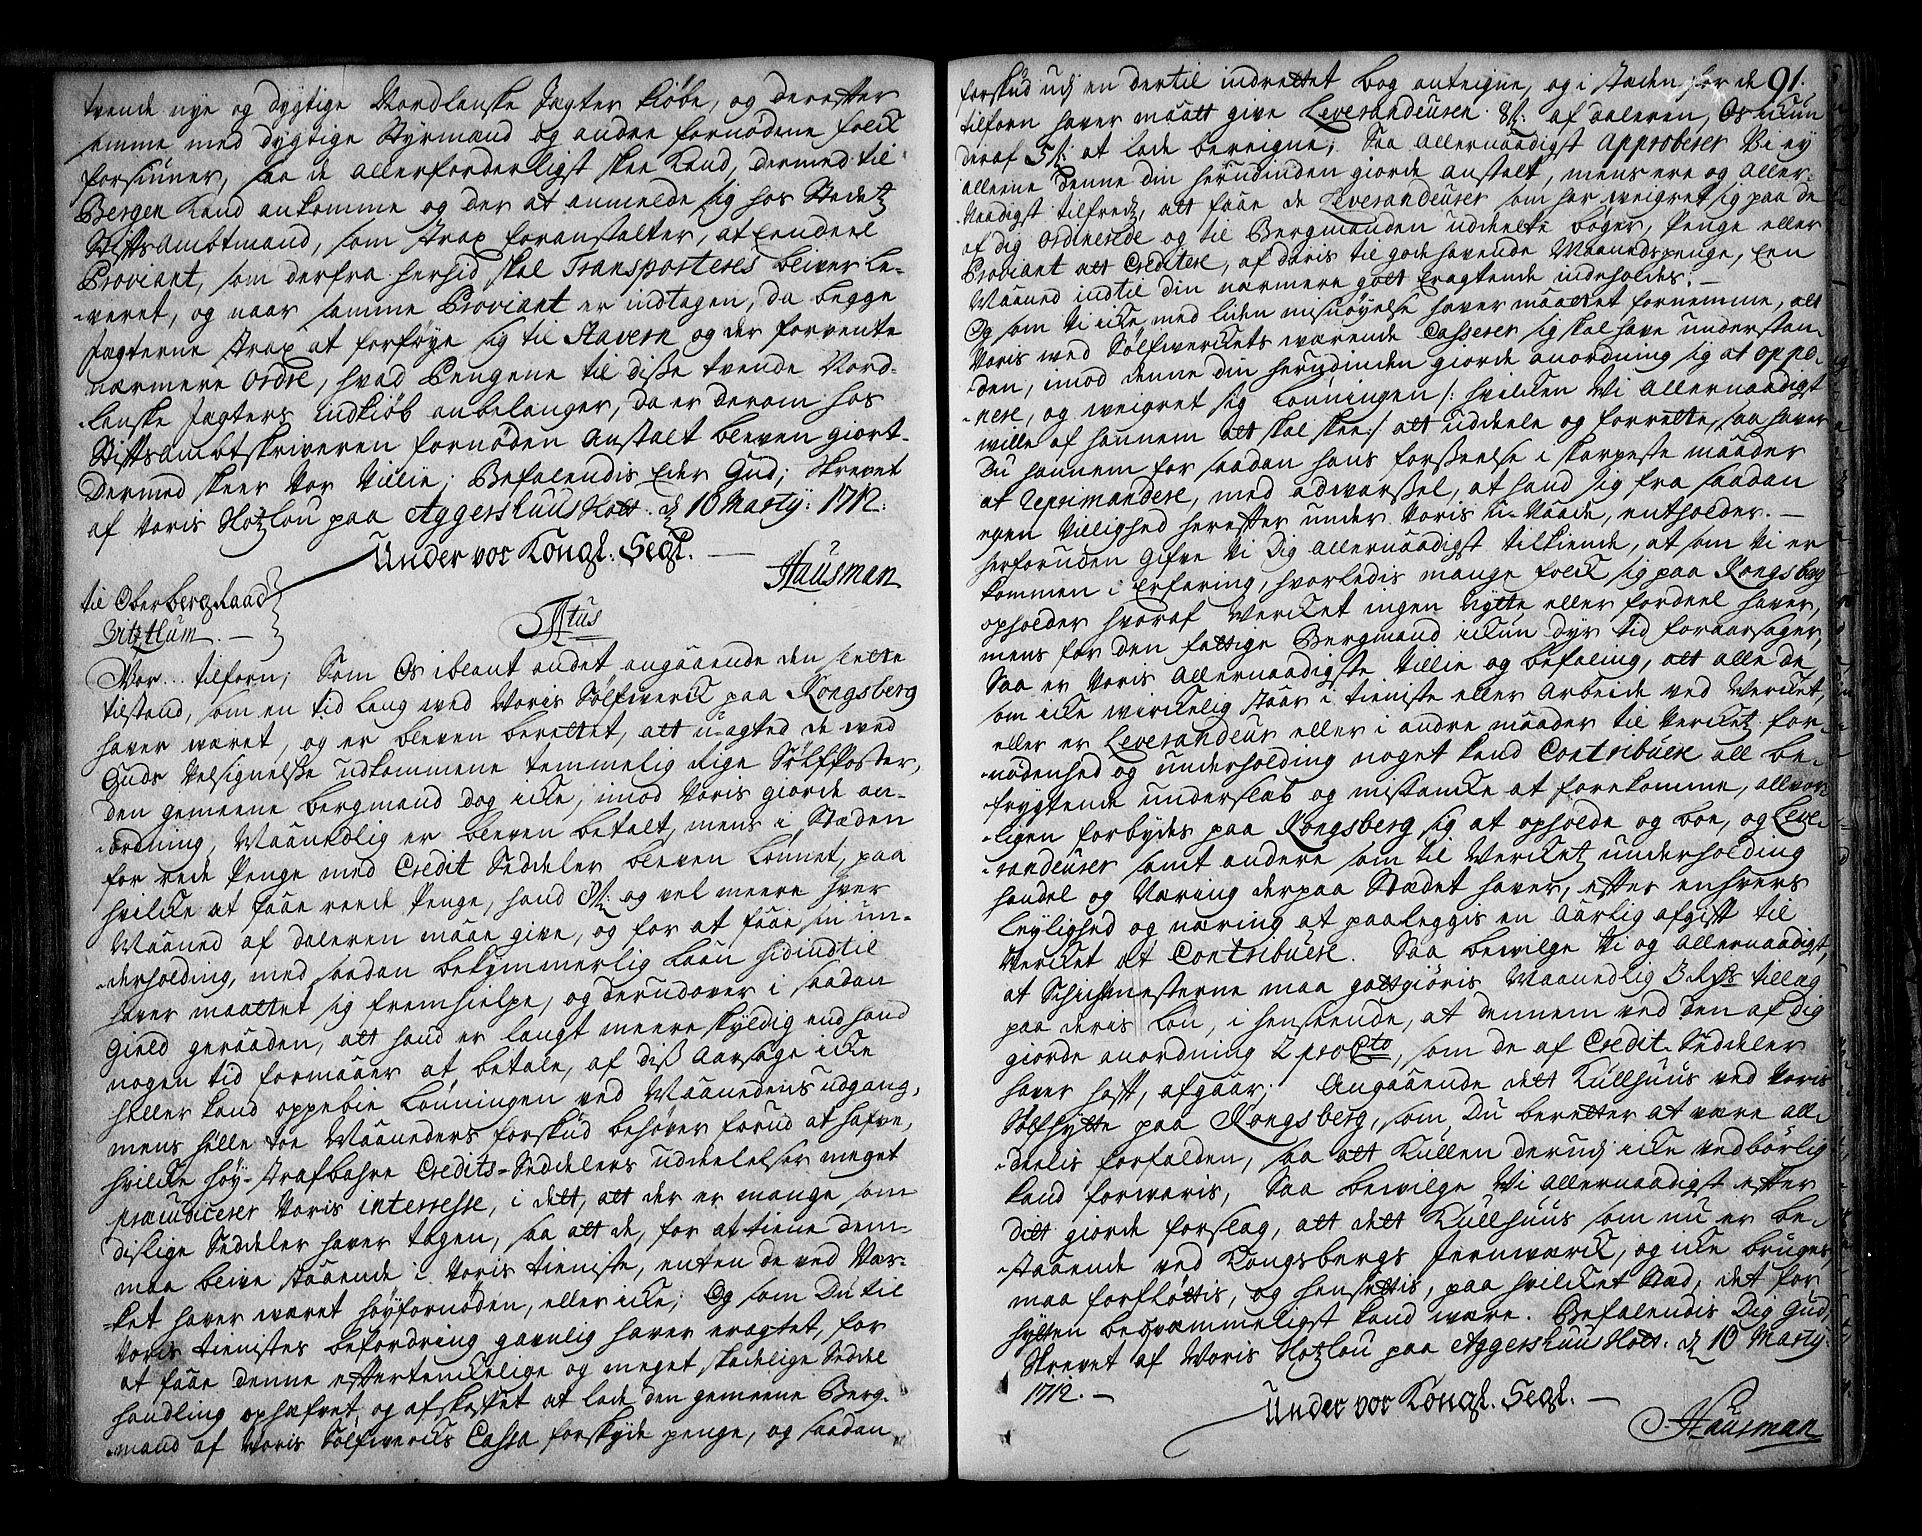 tvende nye og dygtige Nordlanske Jagter kiøbe, og derefter
samme med dygtige Styrmænd og andre fornødene folck
forsiuner, saa de allerforderligst skee kand, dermed til
Bergen kand ankomme og der at anmelde sig hos Stedetz
Stifts Ambtmand, som strax foranstalter, at en deel
Proviant, som derfra herhid skal Transporteres bliver le-
-veret, og naar samme Proviant er indtagen, da begge
Jagterne strax at forføye sig til Stavern og der forvente
nærmere Ordre, hvad Pengene til disse tvende Nord-
-lanske Jagters Indkiøb anbelanger, da er derom hos
Stiftsambtskriveren fornøden Anstalt bleven giort.
Dermed skeer Vor Villie; Befalendis Eder Gud; Skrevet
af Voris Slotzlou paa Aggershuus Slott. d 10 Marty: 1712.
Under vor Kongl. Segl.
Hausman
til Oberbergraad
Vitzthum.
F 4tus
Vor.. tilforn; Som Os iblant andet angaaende den slette
tilstand, som en tid lang ved Voris Sølfwerck paa Kongsberg
haver været, og er bleven berettet, att uagted de ved
Guds Velsignelse udkommene temmelig Rige Sølfposter,
den gemeene bergmand dog icke, imod Voris giorde an-
-ordning, Maanedlig er bleven betalt, mens i Stæden
for rede Penge med Credit Seddeler bleven Lønnet, paa
hvilcke at faae reede Penge, hand 8 s: og vel meere hver
Maaned af daleren maae give, og for at faae sin un-
-derholding, med saadan bekymmerlig laan hidindtil
haver maattet sig fremhielpe, og derudover i saadan
Gield geraaden, att hand er langt meere skyldig end hand
nogen tid formaaer at betale, af diss Aarsage icke
heller kand oppebie Lønningen ved Maanedens udgang,
mens hille toe Maaneders forskud behøver forud at hafve,
hvilcke høy-strafbahre Credits-Seddelers uddeelelser meget
præjudicerer Voris interresse, i dett, att der er mange som
dislige Seddeler haver tagen, saa att de, for at tiene dem-
maa blive staaende i Voris tieniste, enten de ved Vær-
-ket haver været høyfornøden, eller icke; Og som Du til
Voris tienistes befordring gavnlig haver eragtet, for
at faae denne eftertenckelige og meget skadelige Seddel
handling ophæfvet og afskaffet at lade den gemeene Berg-
-mand af Voris Sølfwercks Cassa forskyde penge, og saadan
91.
forskud udj en dertil indrettet bog anteigne, og i staden for de
tilforn haver maatt give Leverandeuren 8 s: af daleren, Os ickun
deraf 5 s: at lade bereigne; Saa Allernaadigst Approberer Vi ey
alleene denne din herudinden giorde anstalt, mens ere og aller-
Naadigst tilfredz, att faae de Leverandeurer som har weigret sig paa de
af dig Ordinerede og til Bergmanden uddeelte bøger, Penge eller
Proviant att Creditere, af deris til godehavende Maanedspenge, Een
Maaned indtil din nærmere godt Eragtende indeholdes.-
Og som Vi icke med liden misnøyelse haver maattet fornemme, att
Voris ved Sølfwerckets wærende Casserer sig skal have understan-
-den, imod denne din herudinden giorde anordning sig at oppo-
-nere, og weigret sig Lønningen /: hvilcken Vi Allernaadigst
wille af hannem att skal skee:/ att uddeele og forrette, saa haver
Du hannem for saadan hans forseelse i skarpeste maader
at reprimandere, med advarssel, at hand sig fra saadan
egen Villighed herefter under Voris U-Naade, entholder.-
herforuden Gifve Vi Dig Allernaadigst tilkiende, at som Vi er
kommen i Erfaring, hvorledis mange folck sig paa Kongsberg
opholder hvoraf Vercket ingen Nytte eller fordeel haver,
mens for den fattige Bergmand ickun dyr tid foraarsager,
Saa er Voris Allernaadigste Villie og befaling, att alle de
som icke wirckelig staar i tieniste eller Arbeide ved Vercket,
eller er Leverandeur eller i andre maader til Vercketz for-
-nødenhed og underholding noget kand Contribuere all be-
frygtende underslæb og mistancke at forekomme, allvor-
-ligen forbydes paa Kongsberg sig at opholde og boe, og Leve-
-randeurer samt andere som til Vercketz underholding
handel og Næring derpaa Stædet haver, efter enhvers
Leylighed og næring at paaleggis en Aarlig afgift til
Vercket at Contribuere. Saa bewilge Vi og Allernaadigst,
at Schichmesterne maa gottgiøris Maanedlig 3 Rdr tillæg
paa deris Løn, i henseende, at dennem ved den af dig
giorde anordning 2 pro Cto, som de af Credit-Seddeler
haver hafft, afgaar; Angaaende dett Kullhuus ved Voris
Sølfhytte paa Kongsberg, som Du beretter at være all-
-deelis forfalden, saa att Kullen derudj icke vedbørlig
kand forvaris, Saa bewilge Vi Allernaadigst efter
ditt giorde forslag, att dett Kullhuus som nu er be-
-staaende ved Kongsbergs Jernwærck, og icke bruges,
maa forfløttis, og hensettis, paa hvilcket Stæd, det for
hytten beqvæmmeligst kand være. Befalendis Dig Gud,
Skrevet af Voris Slotzlou paa Aggershuus Slott. d 10 Marty.
1712.-
Under vor Kongl. Segl.-
Hausman